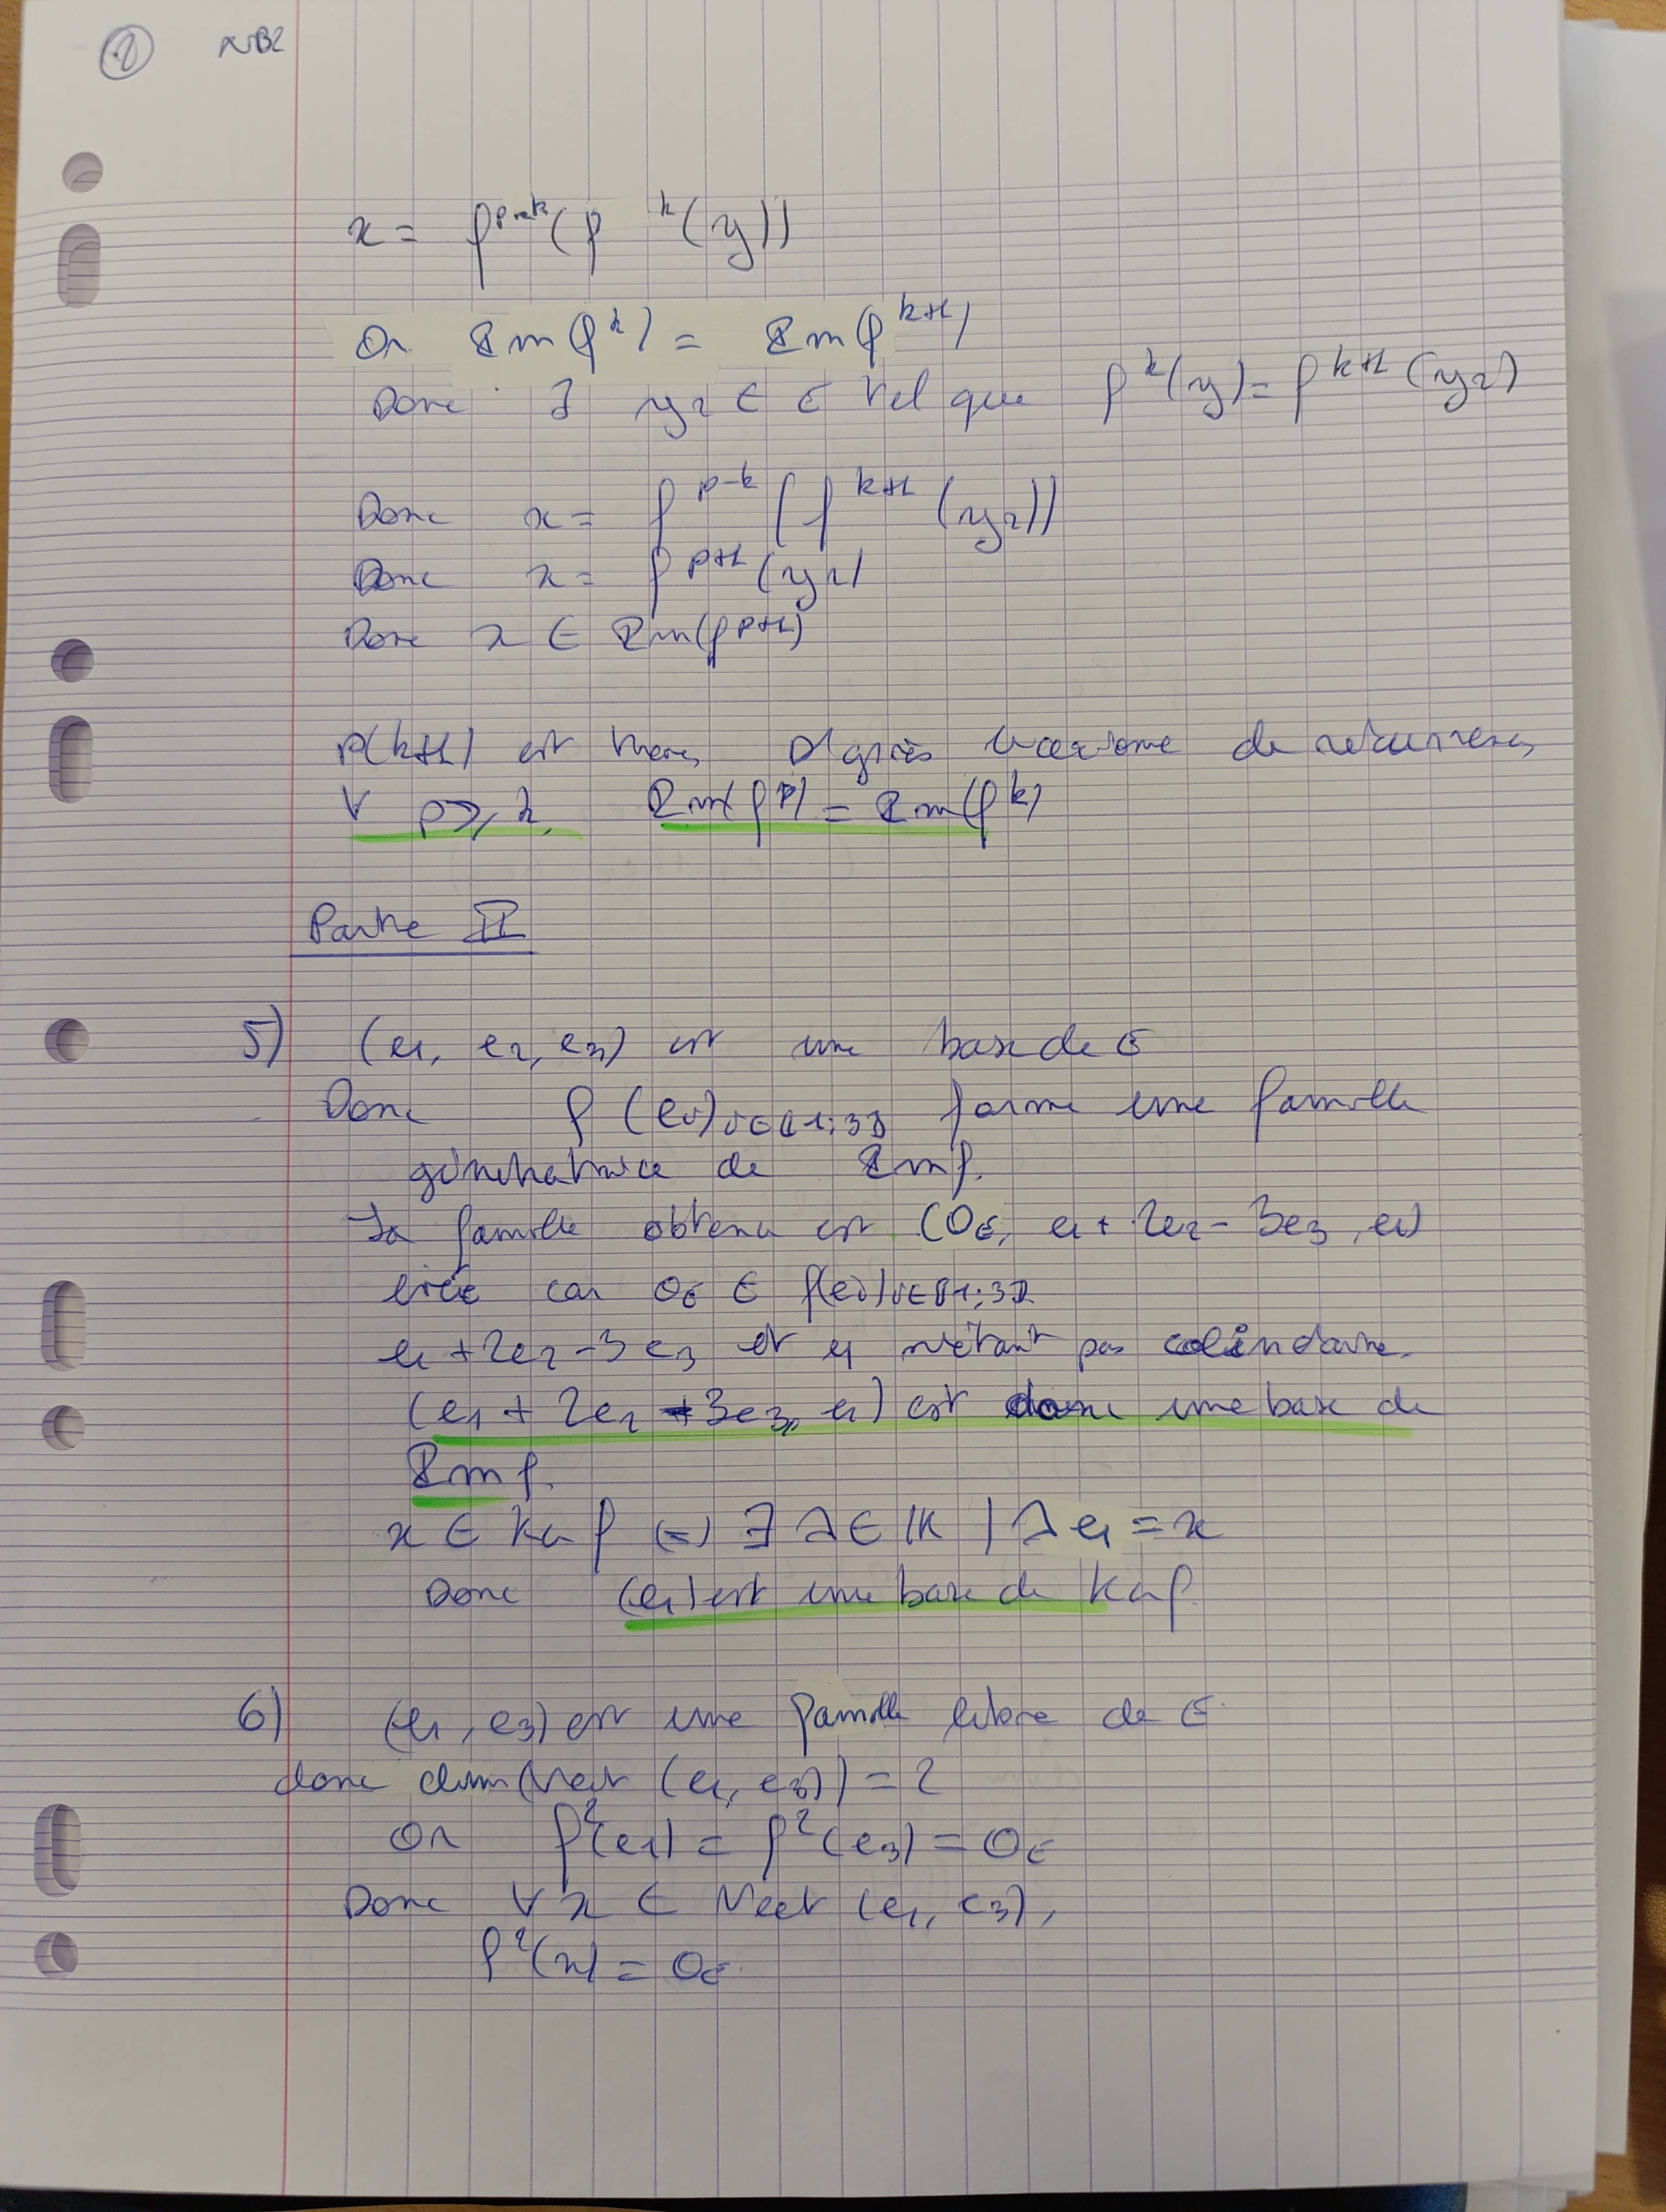 2 NB2
x = f^{p-k}(f^{k}(y))
Or Im(f^k) = Im(f^{k+1})
Donc ∃ y_2 ∈ E tel que f^k(y) = f^{k+1}(y_2)
Donc x = f^{p-k}(f^{k+1}(y_2))
Donc x = f^{p+1}(y_2)
Donc x ∈ Im(f^{p+1})
P(k+1) est vraie, D'après l'axiome de récurrence,
∀ p ≥ k, Im(f^p) = Im(f^k)
Partie II
5) (e_1, e_2, e_3) est une base de E
Donc f(e_i)_{i∈⟦1;3⟧} forme une famille
génératrice de Im f.
La famille obtenu est (0_E, e_1 + 2e_2 - 3e_3, e_1)
liée car 0_E ∈ f(e_i)_{i∈⟦1;3⟧}
e_1 + 2e_2 - 3e_3 et e_1 n'étant pas colinéaire.
(e_1 + 2e_2 - 3e_3, e_1) est donc une base de
Im f.
x ∈ Ker f ⟺ ∃ λ ∈ 𝕂 | λe_1 = x
Donc (e_1) est une base de Ker f.
6) (e_1, e_3) est une famille libre de E.
donc dim(Vect(e_1, e_3)) = 2
Or f^2(e_1) = f^2(e_3) = 0_E
Donc ∀ x ∈ Vect(e_1, e_3),
f^2(x) = 0_E.